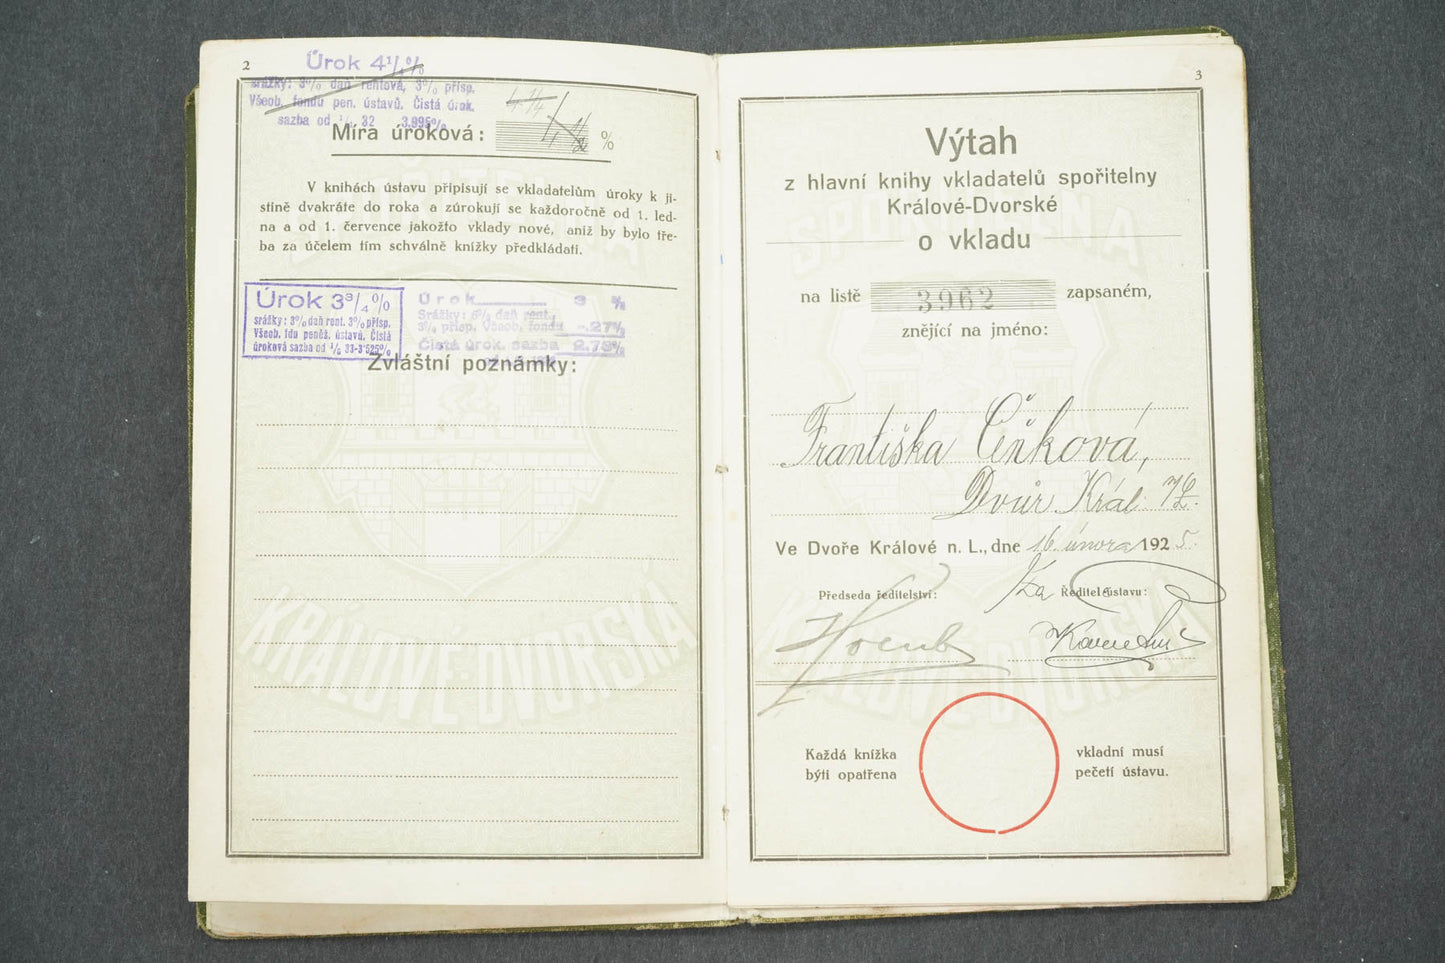 2
Úrok 4¼%
srážky: 3% daň rentová, 3% přísp.
Všeob. fondu pen. ústavů. Čistá úrok.
sazba od ¹/₁ 32 3.995%
4 ¼
Míra úroková: 4 ½ %
V knihách ústavu připisují se vkladatelům úroky k ji-
stině dvakráte do roka a zúrokují se každoročně od 1. led-
na a od 1. července jakožto vklady nové, aniž by bylo tře-
ba za účelem tím schválně knížky předkládati.
Úrok 3¾%
srážky: 3% daň rent. 3% přísp.
Všeob. fdu peněž. ústavů. Čistá
úroková sazba od ¹/₅ 33-3'525%
Úrok 3 %
Srážky: 6% daň rent.,
3% přísp. Všeob. fondu -.27%
Čistá úrok. sazba 2.73%
Zvláštní poznámky:
SPOŘITELNA
KRÁLOVÉ-DVORSKÁ
3
Výtah
z hlavní knihy vkladatelů spořitelny
Králové-Dvorské
o vkladu
na listě 3962 zapsaném,
znějící na jméno:
Františka Čeňková,
Dvůr Král.
Ve Dvoře Králové n. L., dne 16. února 1925.
Předseda ředitelství: Za Ředitel ústavu:
Každá knížka vkladní musí
býti opatřena pečetí ústavu.
SPOŘITELNA
KRÁLOVÉ-DVORSKÁ